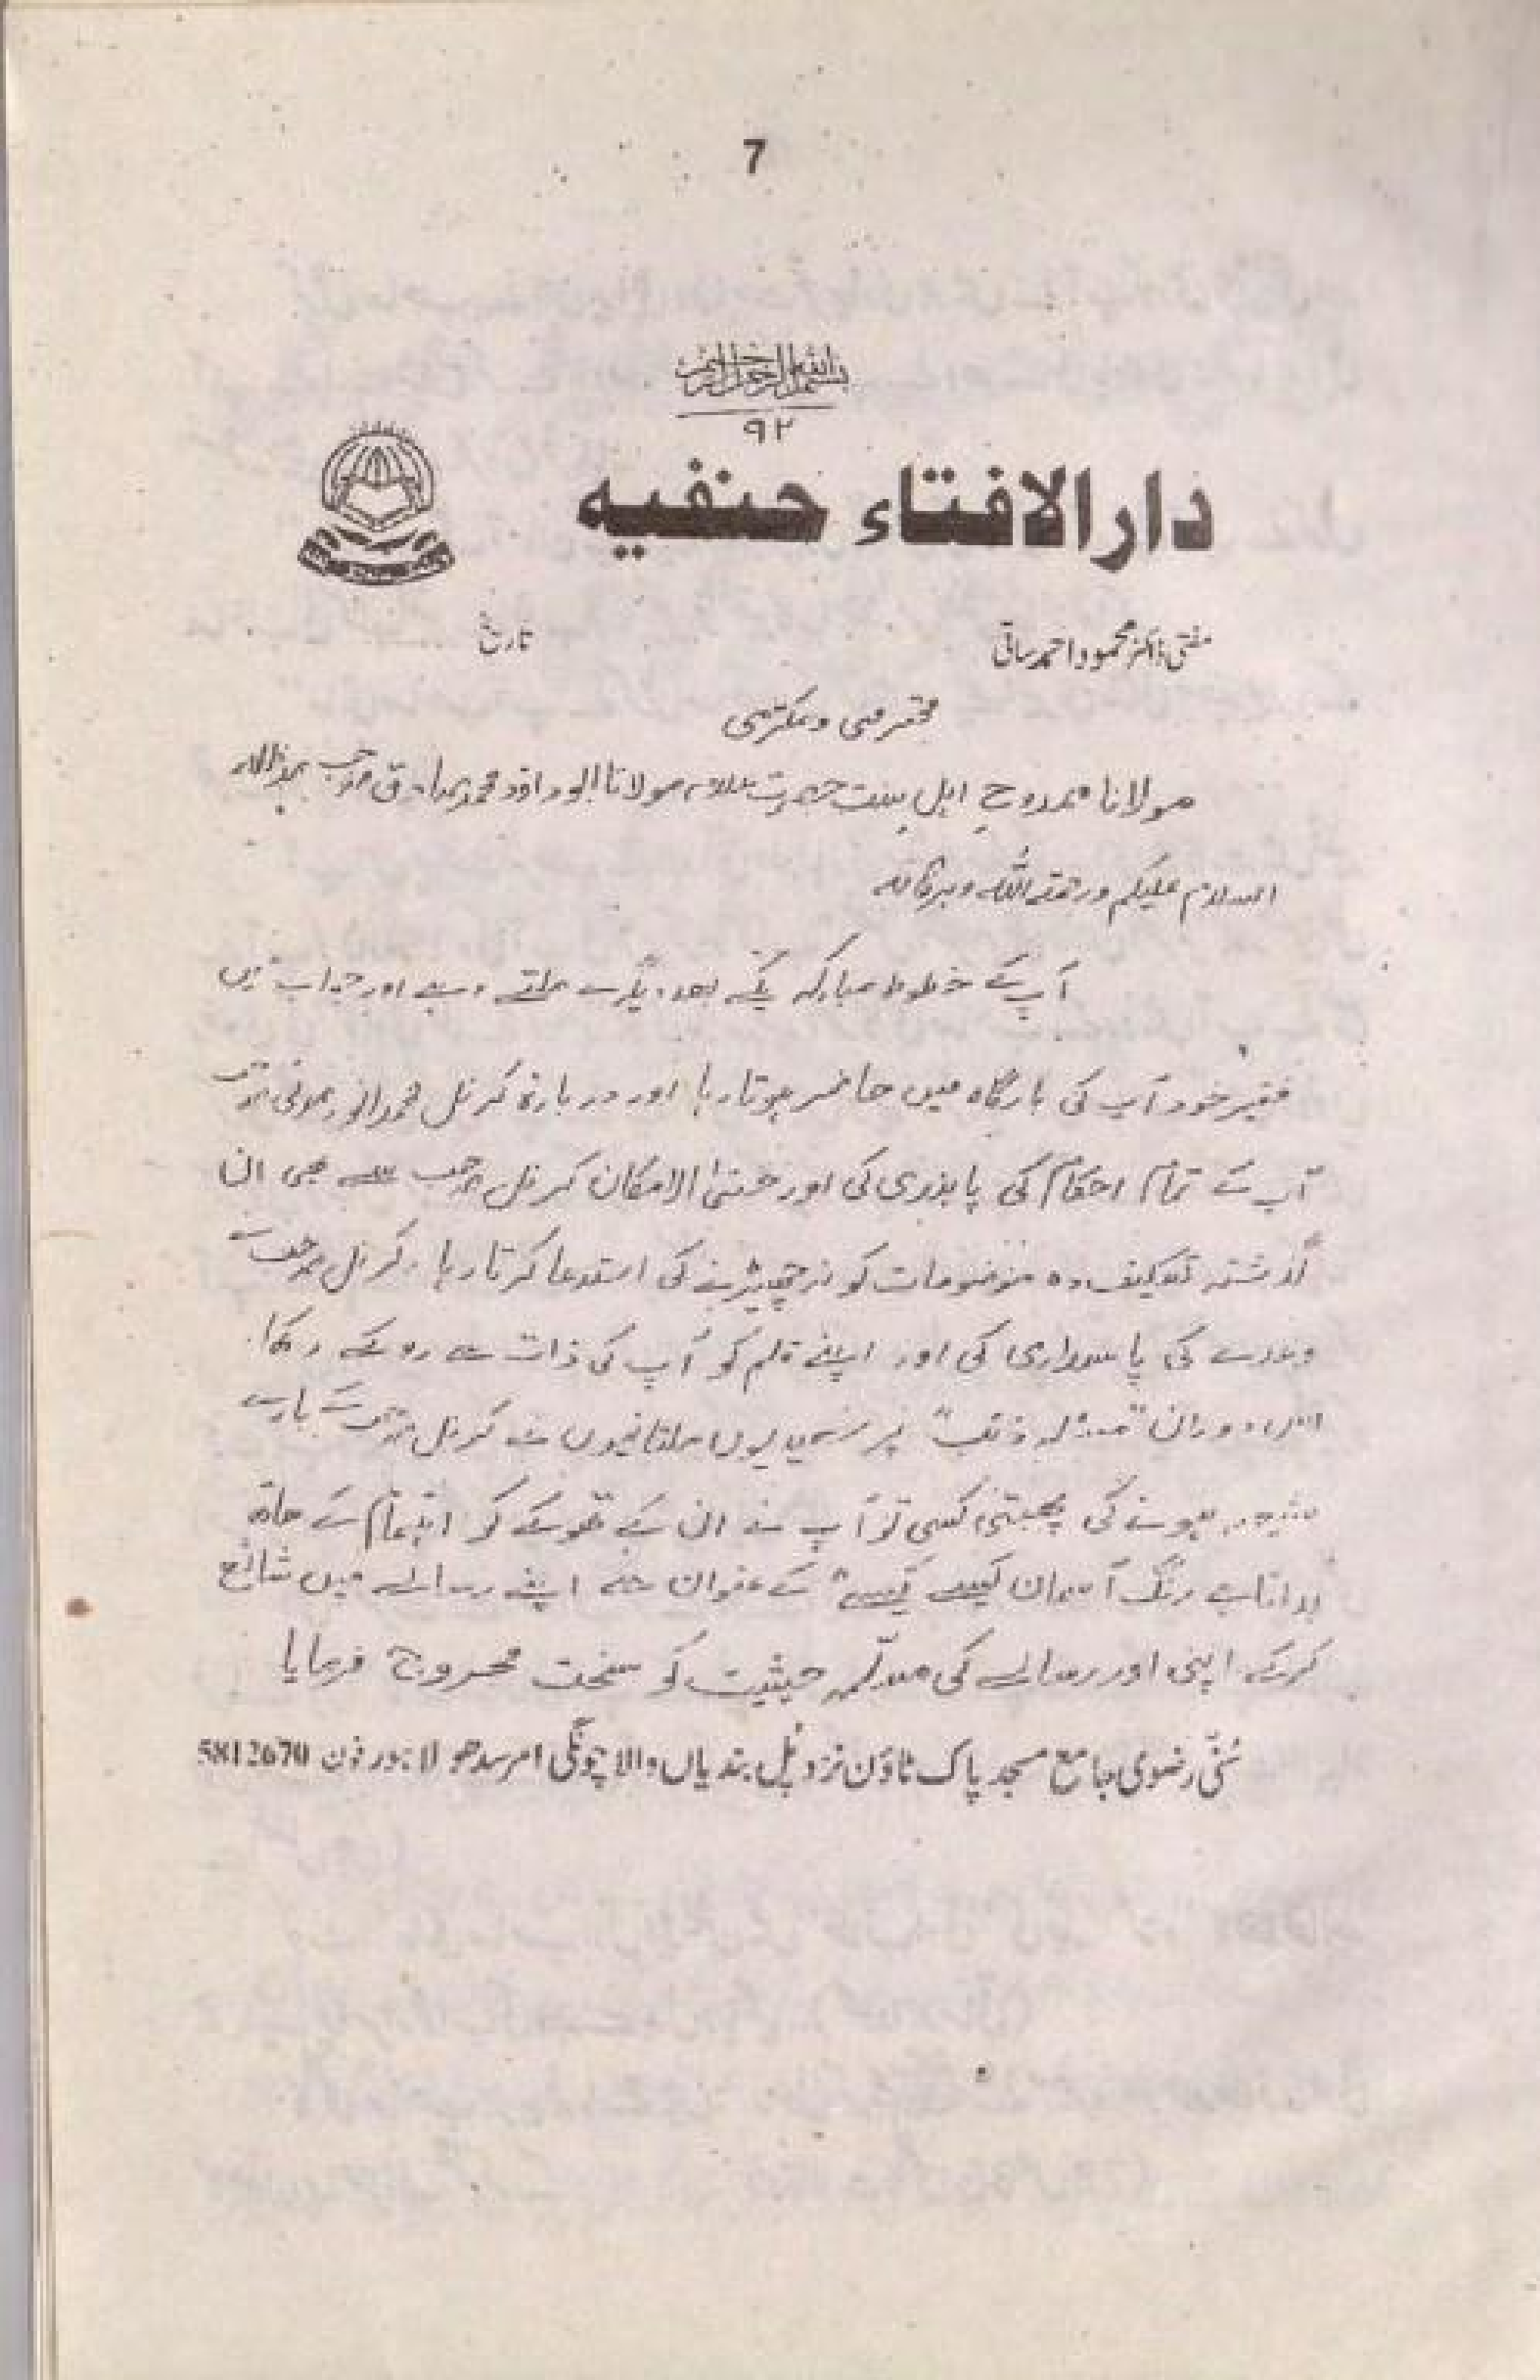 7
بسم الله الرحمن الرحيم
٩٢
دارالافتاء حنفیہ
مفتی ڈاکٹر محمود احمد ساقی
تاریخ
محترمی و مکرمی
مولانا ممدوحِ اہل سنت حضرت علامہ مولانا ابوداؤد محمد صادق صاحب
السلام علیکم ورحمتہ اللہ وبرکاتہ
آپ کے خطوط مبارکہ یکے بعد دیگرے ملتے رہے اور جواب میں
فقیر خود آپ کی بارگاہ میں حاضر ہوتا رہا اور دربارۂ کرنل محمد انور مدنی
آپ کے تمام احکام کی پابندی کی اور حتی الامکان کرنل صاحب سے بھی ان
گذشتہ تکلیف دہ موضوعات کو نہ چھیڑنے کی استدعا کرتا رہا، کرنل صاحب نے
وعدے کی پاسداری کی اور اپنے قلم کو آپ کی ذات سے روکے رکھا.
اس دوران پر کرنل کے بارے
ہونے کی پھبتی کسی تو آپ نے ان کے تھوکے کو کے ساتھ
بدلتا ہے رنگ آسمان کیسے کیسے" کے عنوان سے اپنے رسالے میں شائع
کرکے اپنی اور رسالے کی مسلّمہ حیثیت کو سخت مجروح فرمایا
سُنّی رضوی جامع مسجد پاک ٹاؤن نزد پُل بندیاں والا چونگی امرسدھو لاہور فون 5812670